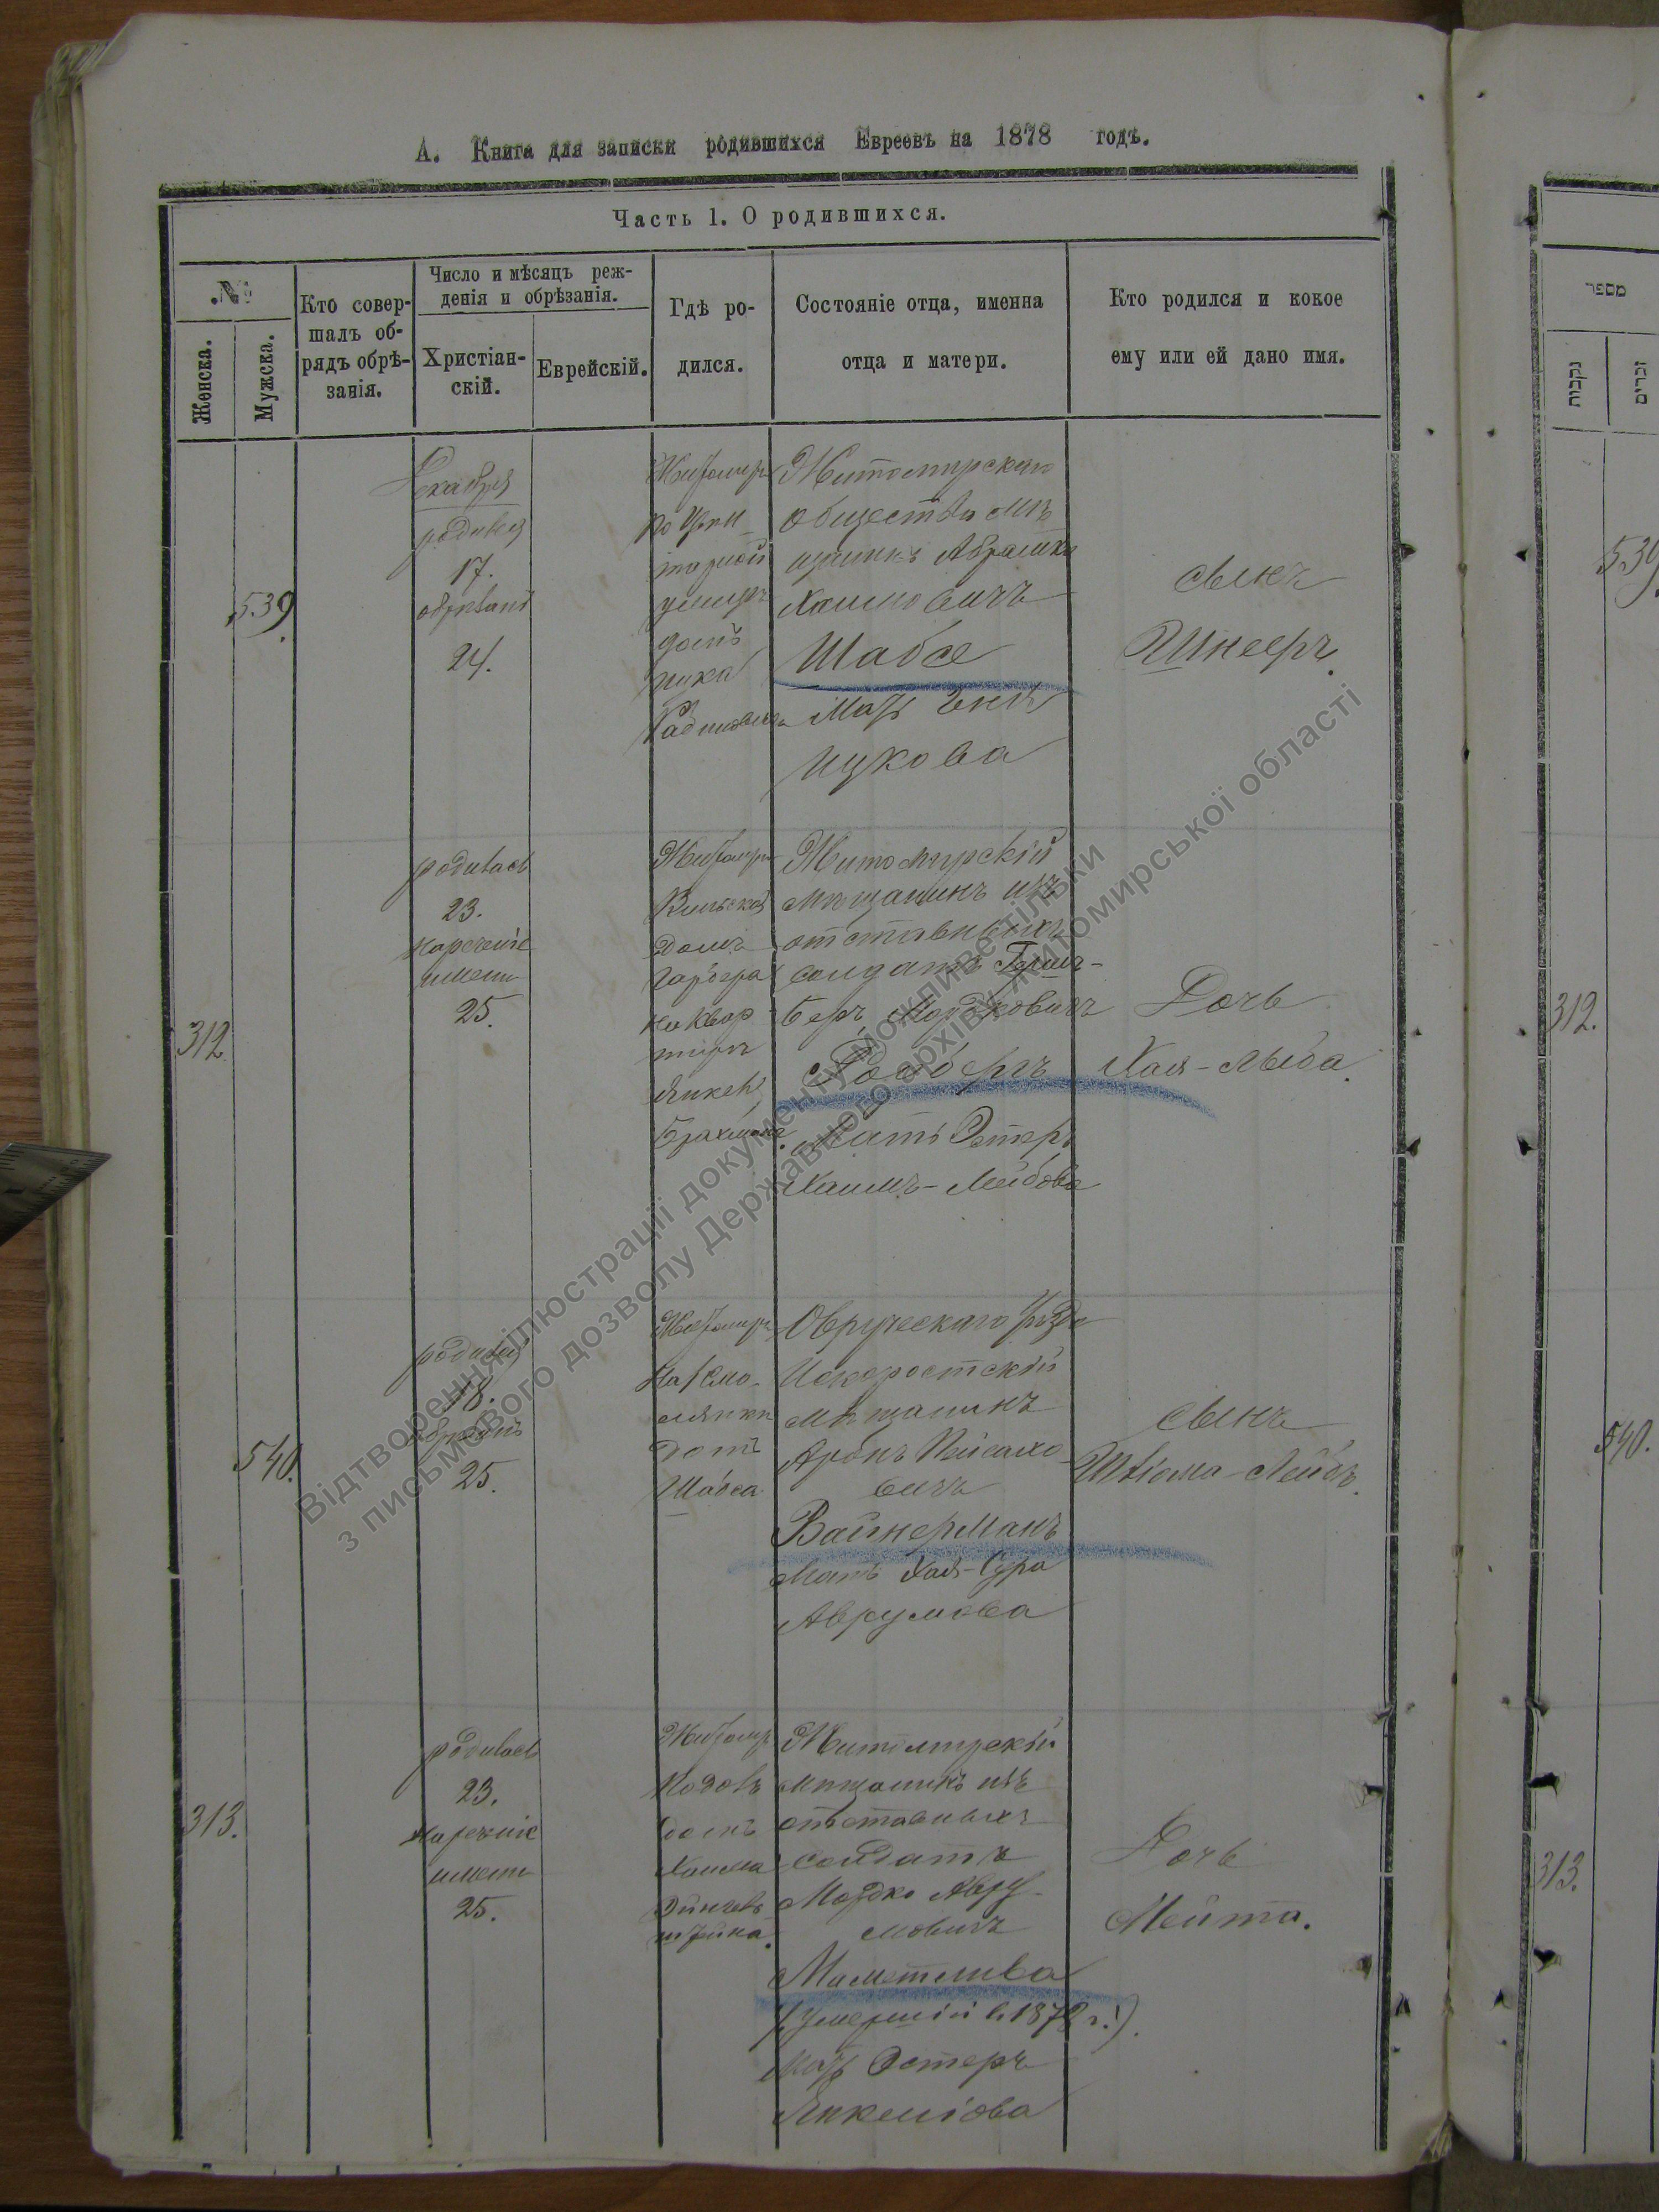 А. Книга для записки родившихся Евреевъ на 1878 годъ.
Часть 1. О родившихся.
№
Женска.
Мужска.
Кто совер-
шалъ об-
рядъ обрѣ-
занія.
Число и мѣсяцъ реж-
денія и обрѣзанія.
Христіан-
скій.
Еврейскій.
Гдѣ ро-
дился.
Состояніе отца, именна
отца и матери.
Кто родился и кокое
ему или ей дано имя.
539.
Декабря
родился
17.
обрѣзанъ
24.
Житомиръ
домъ
Ицка
Житомирскаго
общества мѣ
щанинъ Абрамко
Хаимовичъ
Шабсе
Мать
Ицкова
сынъ
Шнееръ.
312.
родилась
23.
нареченіе
имени
25.
Житомиръ
Вильской
домъ
на квар
тирѣ
Житомирскій
мѣщанинъ изъ
отставныхъ
солдатъ Гершъ-
Беръ Мордковичъ
мать Эстеръ
Хаимъ-Лейбова
Дочь
Хая-Лыба.
540.
родился
18.
обрѣзанъ
25.
Житомиръ
домъ
Шабса
Овручскаго уѣзда
Искоростскій
мѣщанинъ
Аронъ Пейсахо
вичъ
Вайнерманъ
мать Хая-Сура
Аврумова
сынъ
Шліома-Лейбъ.
313.
родилась
23.
нареченіе
имени
25.
Житомиръ
домъ
Хаима
штейна.
Житомирскій
мѣщанинъ изъ
отставныхъ
солдатъ
Мордко Авру-
мовичъ
(умершій в 1878 г.).
мать Эстеръ
Янкеліова
Дочь
Мейта.
מספר
נקבות
זכרים
539.
312.
540.
313.
Відтворення ілюстрації документу можливе тільки
з письмового дозволу Державного архіву Житомирської області